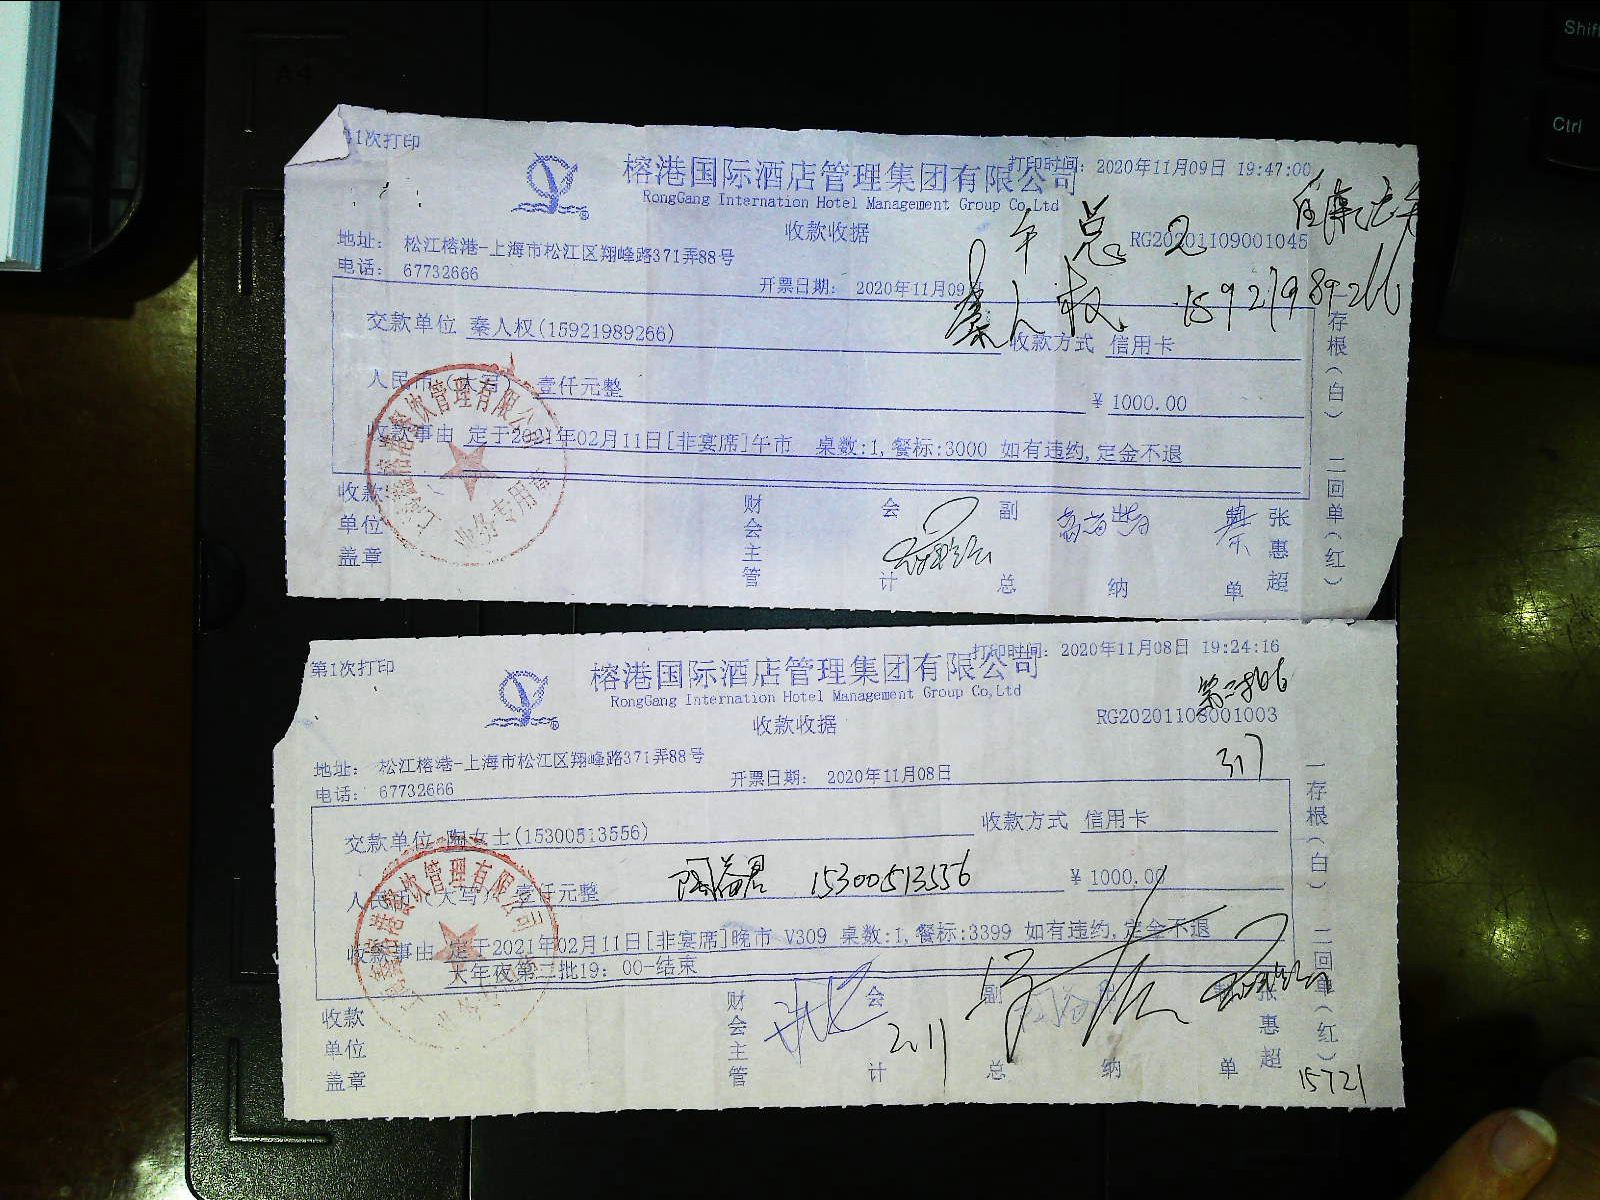 A4
Shift
Ctrl
第1次打印
榕港国际酒店管理集团有限公司
打印时间: 2020年11月09日 19:47:00
RongGang Internation Hotel Management Group Co,Ltd
收款收据
午总 2
RG20201109001045
地址: 松江榕港-上海市松江区翔峰路371弄88号
电话: 67732666
开票日期: 2020年11月09日
秦人权 15921989266
交款单位 秦人权(15921989266)
收款方式 信用卡
人民币(大写) 壹仟元整
¥ 1000.00
收款事由 定于2021年02月11日[非宴席]午市 桌数:1,餐标:3000 如有违约,定金不退
一存根(白) 二回单(红)
收款单位盖章
财会主管
会计
副总
出纳
制单
张惠超
业务专用章
第1次打印
榕港国际酒店管理集团有限公司
打印时间: 2020年11月08日 19:24:16
RongGang Internation Hotel Management Group Co,Ltd
收款收据
第二批
RG20201108001003
317
地址: 松江榕港-上海市松江区翔峰路371弄88号
电话: 67732666
开票日期: 2020年11月08日
交款单位 陶女士(15300513556)
收款方式 信用卡
人民币(大写) 壹仟元整
陶益君 15300513556
¥ 1000.00
收款事由 定于2021年02月11日[非宴席]晚市 V309 桌数:1,餐标:3399 如有违约,定金不退
大年夜第二批19: 00-结束
一存根(白) 二回单(红)
收款单位盖章
财会主管
会计
2.11
副总
出纳
制单
张惠超
15721